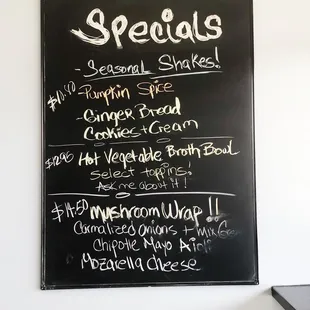 Specials
- Seasonal Shakes!
- Pumpkin Spice
- Ginger Bread
Cookies + Cream
$12.95 Hot Vegetable Broth Bowl
select toppins!
Ask me about it!
$14.50 mushroom Wrap !!
Carmalized onions + mix
Chipotle Mayo Aioli
Mozarella Cheese